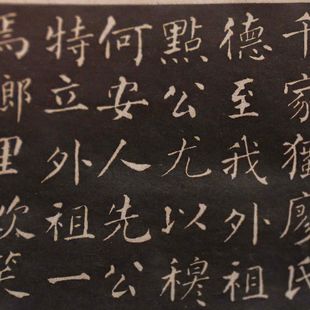 千家獨廖氏
德至我外祖
點公尤以穆
何安人先公
特立外祖一
焉郎里笑